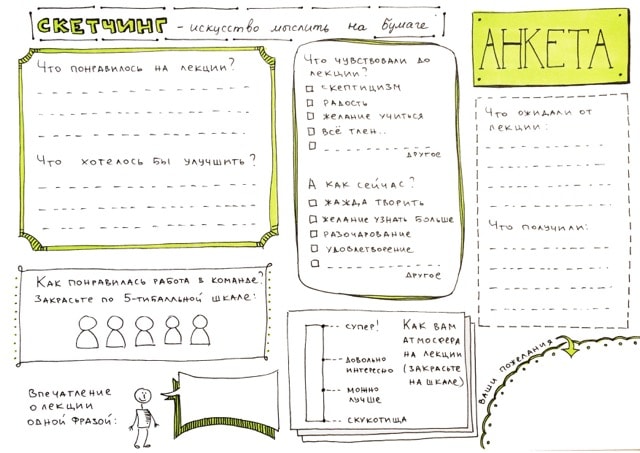 СКЕТЧИНГ - искусство мыслить на бумаге
АНКЕТА
Что понравилось на лекции?
Что хотелось бы улучшить?
Что чувствовали до
лекции?
скептицизм
радость
желание учиться
всё тлен..
другое
А как сейчас?
жажда творить
желание узнать больше
разочарование
удовлетворение
другое
Что ожидали от
лекции:
Что получили:
Как понравилась работа в команде?
Закрасьте по 5-тибалльной шкале:
Впечатление
о лекции
одной фразой:
супер!
довольно
интересно
можно
лучше
скукотища
Как вам
атмосфера
на лекции
(закрасьте
на шкале)
Ваши пожелания